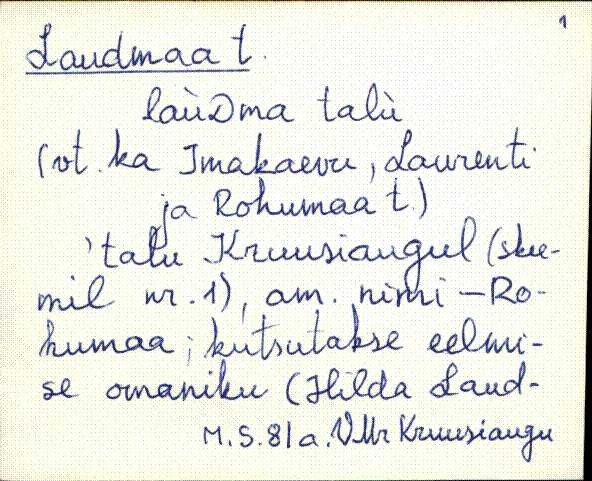 1
Laudmaa t.
laùDma talù
(vt. ka Imakaevu, Laurenti
ja Rohumaa t.)
'talu Kruusiaugul (skee-
mil nr. 1), am. nimi – Ro-
humaa; kutsutakse eelmi-
se omaniku (Hilda Laud-
M.S. 81 a. VMr Kruusiaugu